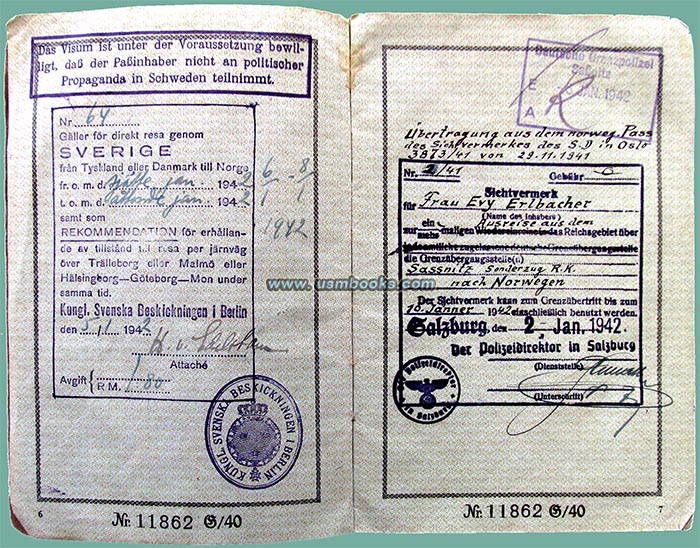 Das Visum ist unter der Voraussetzung bewil-
ligt, daß der Paßinhaber nicht an politischer
Propaganda in Schweden teilnimmt.
Nr 64
Gäller för direkt resa genom
SVERIGE
från Tyskland eller Danmark till Norge
fr. o. m. d. sjätte jan. 1942 6/1 - 8/1
t. o. m. d. åttonde jan. 1942
samt som 1942
REKOMMENDATION för erhållan-
de av tillstånd till resa per järnväg
över Trälleborg eller Malmö eller
Hälsingborg—Göteborg—Mon under
samma tid.
Kungl. Svenska Beskickningen i Berlin
den 5/1 1942
Attaché
Avgift RM. 1.80
KUNGL. SVENSKA BESKICKNINGEN I BERLIN
6
Nr. 11862 G/40
Deutsche Grenzpolizei
Saßnitz
JAN. 1942
E
A
Übertragung aus dem norweg. Pass
des Sichtvermerkes des S.D in Oslo
3873/41 von 29.11.1941
Nr. 2/41 Gebühr 0
Sichtvermerk
für Frau Evy Erlbacher
(Name des Inhabers)
ein Ausreise aus dem
zur mehrmaligen Wiedereinreise in das Reichsgebiet über
jede amtliche zugelassene deutsche Grenzübergangsstelle
die Grenzübergangsstelle(n)
Sassnitz Sonderzug R.K.
nach Norwegen
Der Sichtvermerk kann zum Grenzübertritt bis zum
10. Jänner 1942 einschließlich benutzt werden.
Salzburg, den 2. Jan. 1942.
Der Polizeidirektor in Salzburg
(Dienststelle)
(Unterschrift)
Der Polizeidirektor
in Salzburg
7
Nr. 11862 G/40
www.usmbooks.com